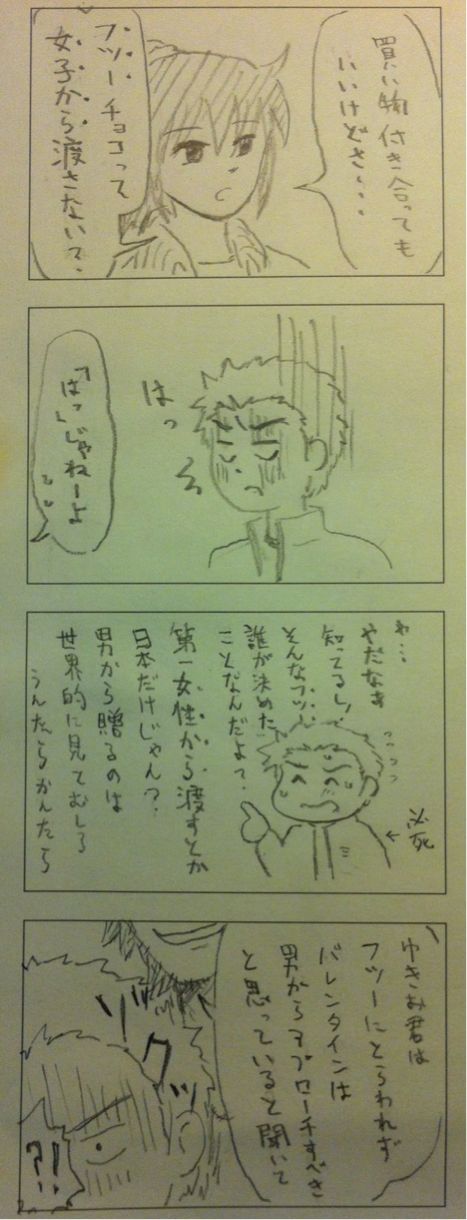 買い物付き合っても
いいけどさ、、、
フツーチョコって
女子から渡さない?
はっ
「はっ」じゃねーよ
や…
やだなぁ
知ってるし!
そんなフツー
誰が決めた
ことなんだよ?
第一女性から渡すとか
日本だけじゃん?
男から贈るのは
世界的に見てむしろ
うんたらかんたら
←必死
ゆきお君は
フツーにとらわれず
バレンタインは
男からアプローチすべき
と思っていると聞いて
ゾクッ
?!